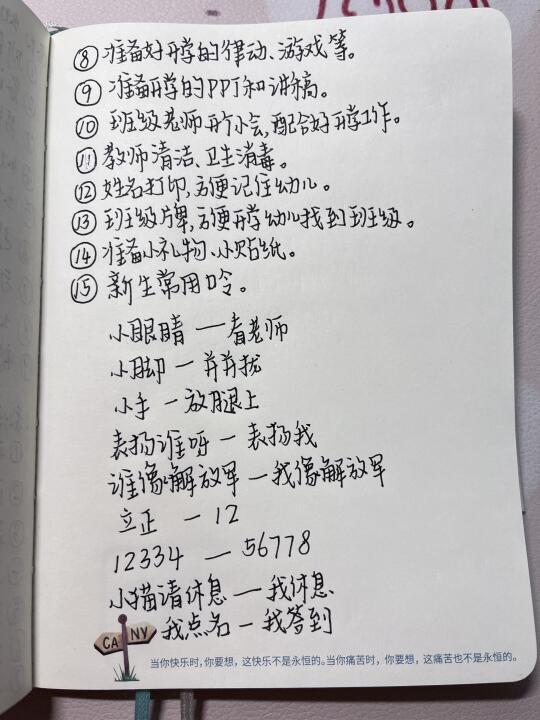 ⑧ 准备好开学的律动、游戏等。
⑨ 准备开学的PPT和讲稿。
⑩ 班级老师开个小会,配合好开学工作。
⑪ 教师清洁、卫生消毒。
⑫ 姓名打印,方便记住幼儿。
⑬ 班级牌,方便开学幼儿找到班级。
⑭ 准备小礼物、小贴纸。
⑮ 新生常用口令。
小眼睛 — 看老师
小脚 — 并并拢
小手 — 放腿上
表扬谁呀 — 表扬我
谁像解放军 — 我像解放军
立正 — 12
12334 — 56778
小猫请休息 — 我休息
我点名 — 我答到
CA NY
当你快乐时,你要想,这快乐不是永恒的。当你痛苦时,你要想,这痛苦也不是永恒的。